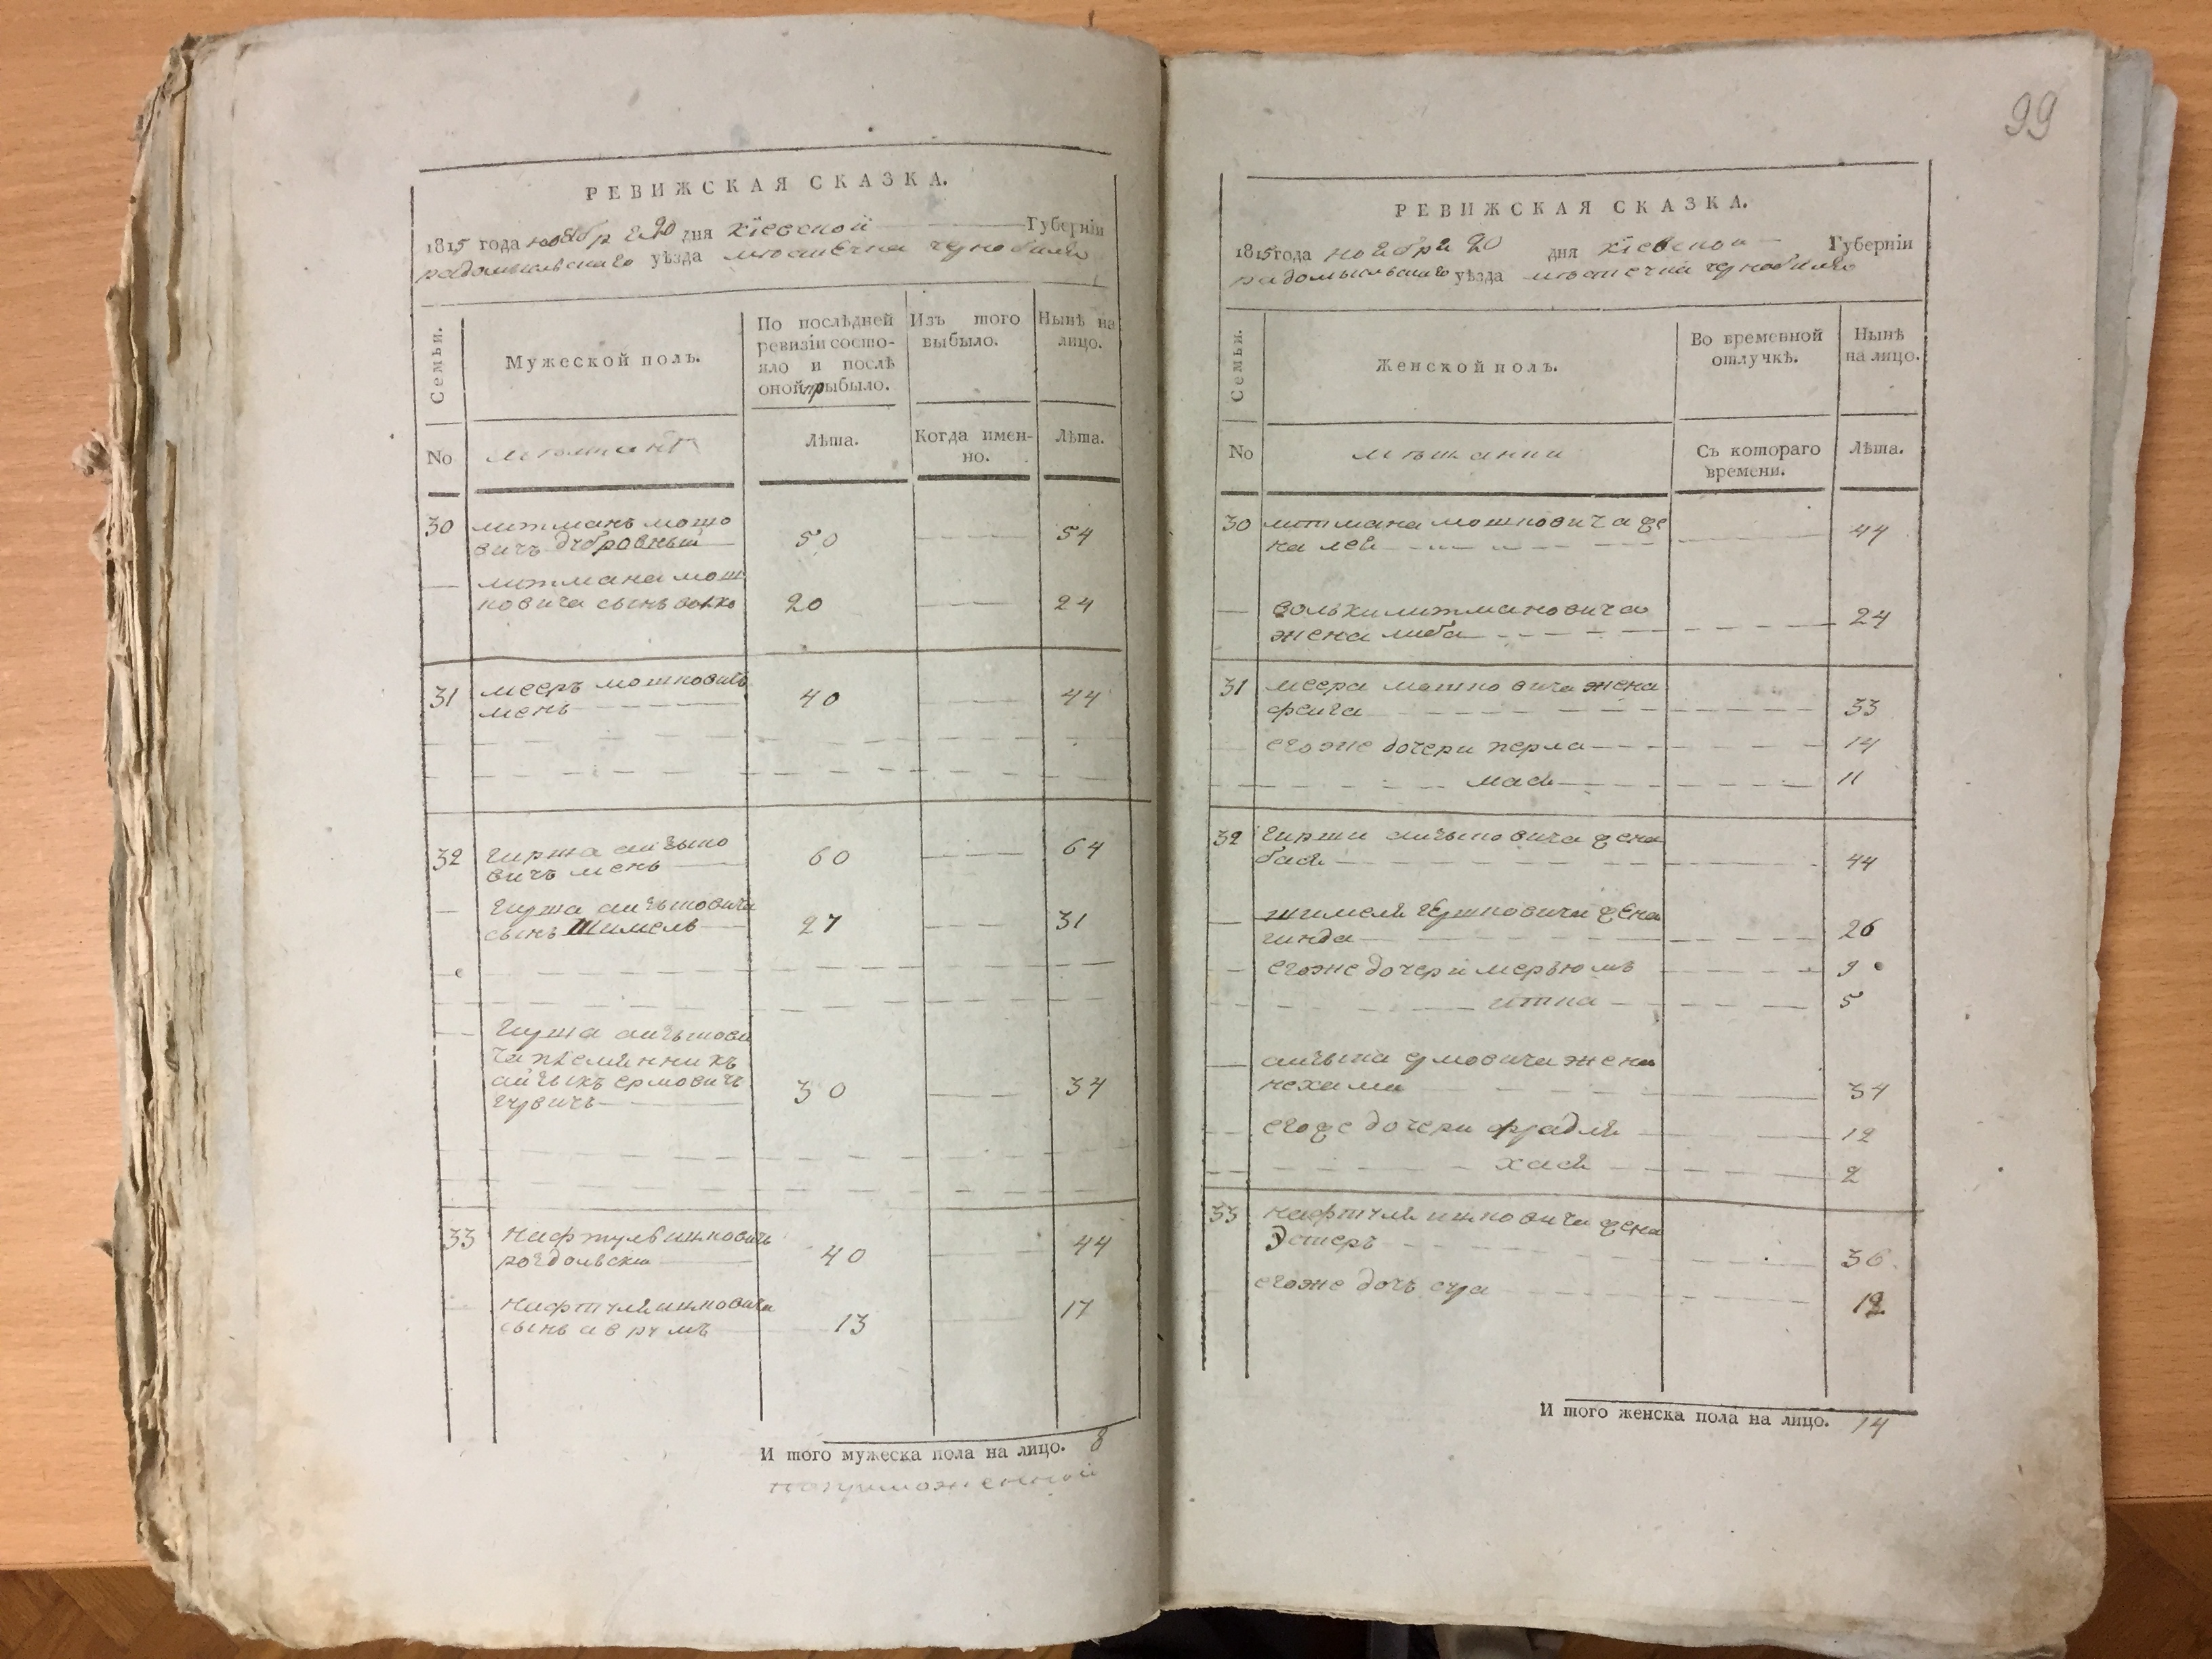 РЕВИЖСКАЯ СКАЗКА.
1815 года ноября 20 дня кїевской Губернїи
радомысльскаго уѣзда мѣстечка чернобиля
Семьи.
Мужеской полъ.
По послѣдней
ревизїи состо-
яло и послѣ
оной прыбыло.
Изъ того
выбыло.
Нынѣ на
лицо.
No
мѣщанъ
Лѣта.
Когда имен-
но.
Лѣта.
30 литманъ мошко
вичъ дубровный 50 54
литмана мош
ковича сынъ волко 20 24
31 мееръ мошковичъ
мень 40 44
32 гирша айзыко
вичъ мень 60 64
гирша айзыковича
сынъ Шимель 27 31
гирша айзыкови
ча племянникъ
айзыкъ ермовичъ
гурвичъ 30 34
33 нафтуль ицковичъ
роздольски 40 44
нафтуля ицковича
сынъ аврумъ 13 17
И того мужеска пола на лицо. 8
99
РЕВИЖСКАЯ СКАЗКА.
1815 года ноября 20 дня кїевской Губернїи
радомысльскаго уѣзда мѣстечка чернобиля
Семьи.
Женской полъ.
Во временной
отлучкѣ.
Нынѣ
на лицо.
No
мѣщанки
Съ котораго
времени.
Лѣта.
30 литмана мошковича же
на лея 44
вольки литмановича
жена либа 24
31 меера мошковича жена
фейга 33
егоже дочери перла 14
мася 11
32 гирши айзыковича жена
бася 44
шимеля гершковича жена
гинда 26
егоже дочери меръюмъ 9
итка 5
айзыка ермовича жена
нехама 34
егоже дочери фрадля 12
хася 2
33 нафтуля ицковича жена
Эстеръ 36
егоже дочь сура 12
И того женска пола на лицо. 14